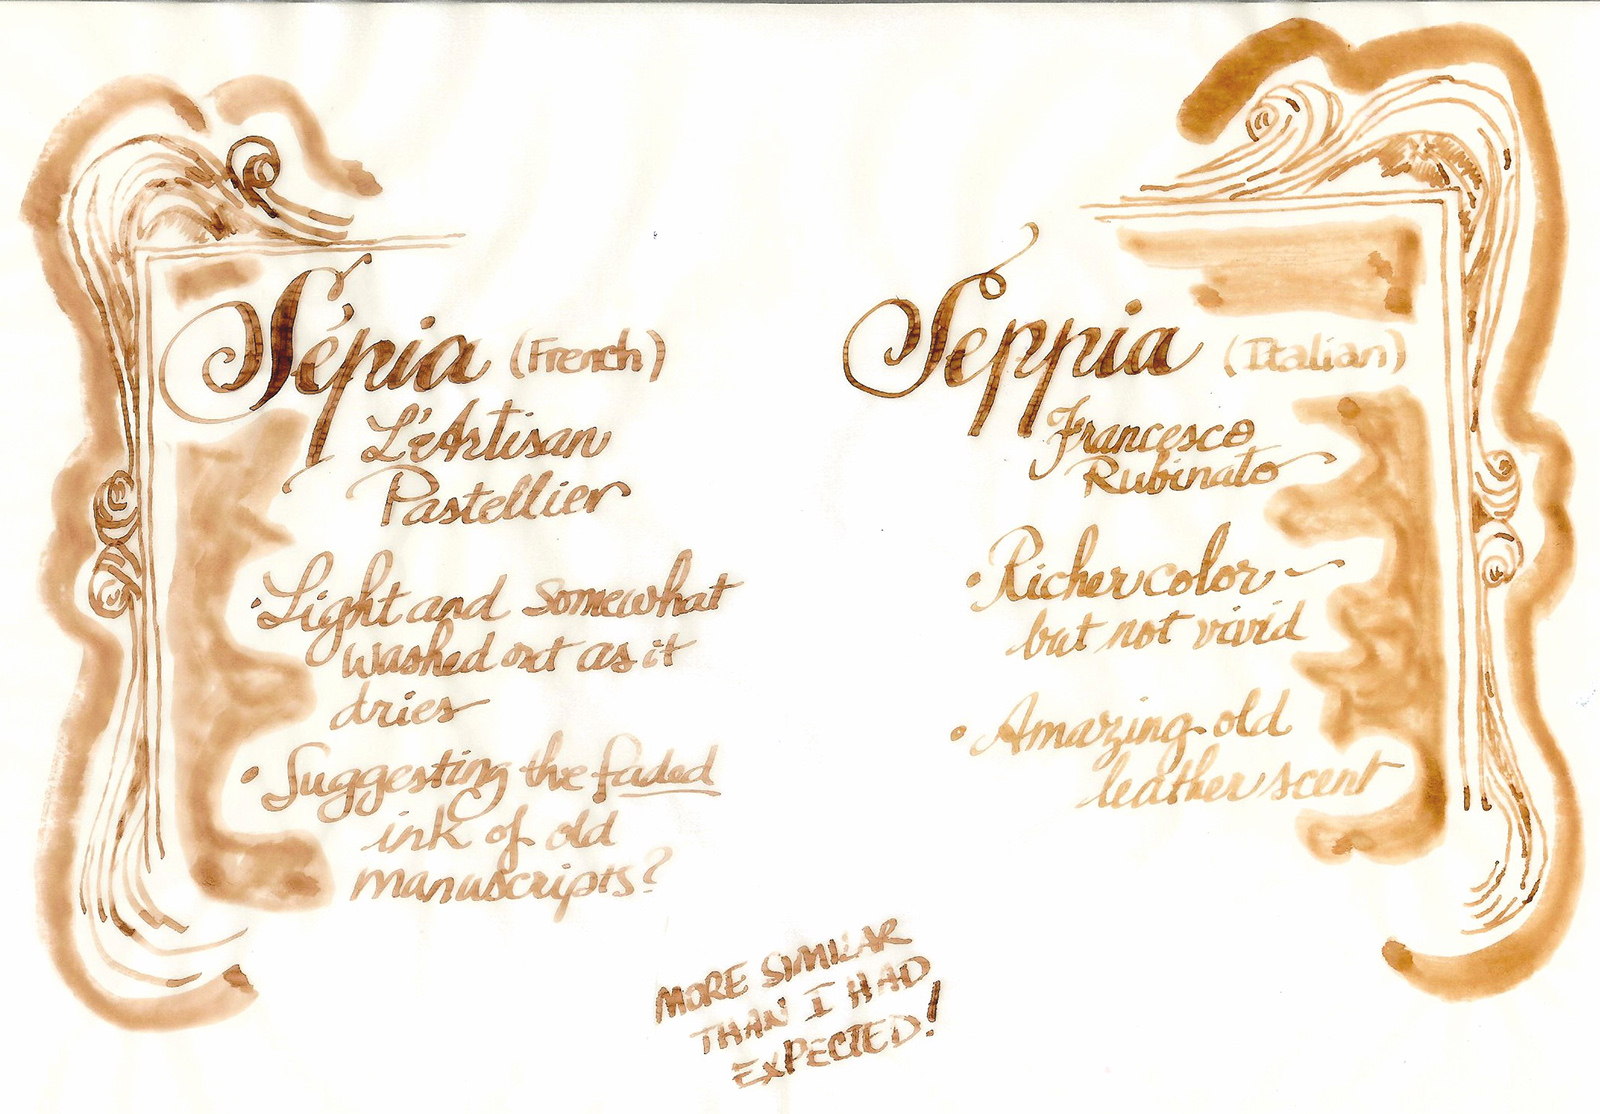 Sépia (French)
L'Artisan
Pastellier
• Light and somewhat
washed out as it
dries
• Suggesting the faded
ink of old
manuscripts?
Seppia (Italian)
Francesco
Rubinato
• Richer color
but not vivid
• Amazing old
leather scent
MORE SIMILAR
THAN I HAD
EXPECTED!